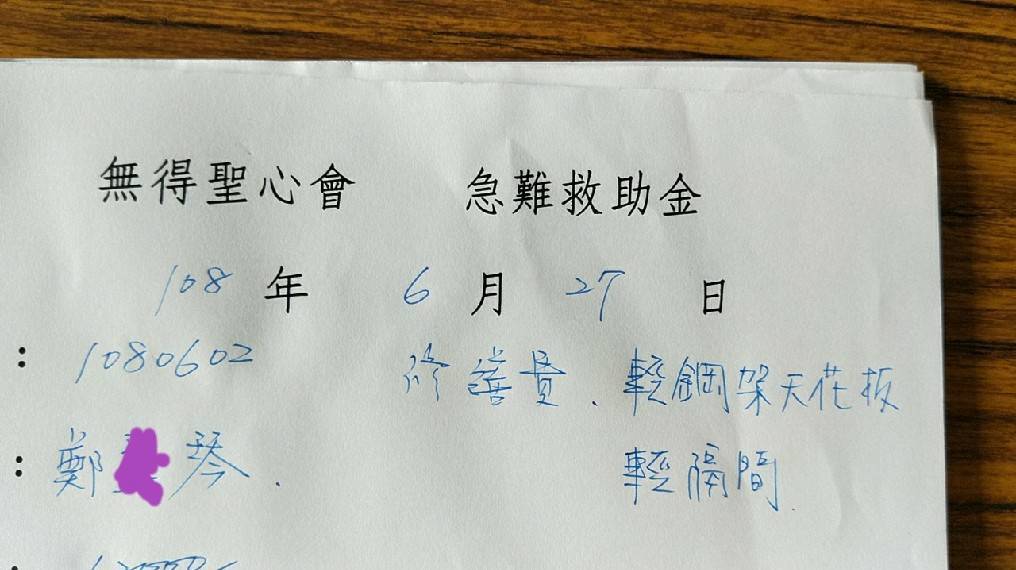 無得聖心會 急難救助金
108 年 6 月 27 日
: 1080602 修善費、輕鋼架天花板
: 鄭 琴. 輕隔間.
: